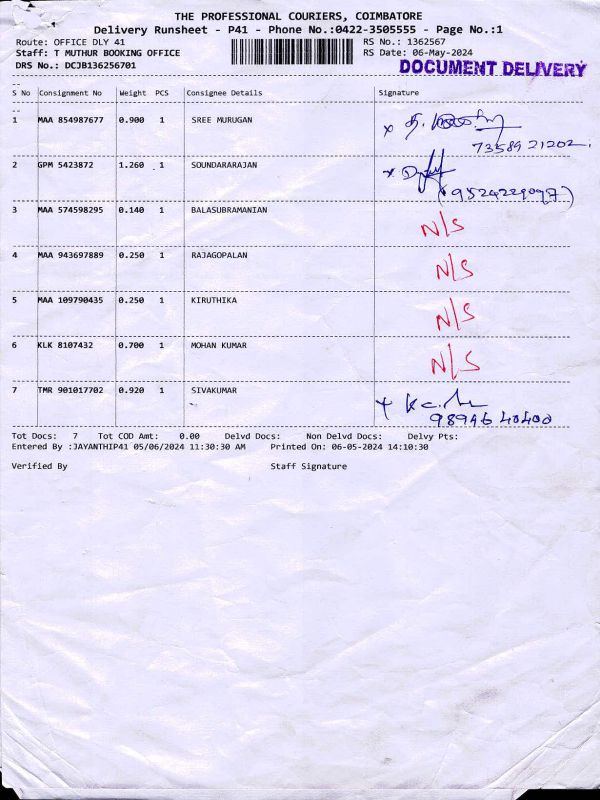 THE PROFESSIONAL COURIERS, COIMBATORE
Delivery Runsheet - P41 - Phone No.:0422-3505555 - Page No.:1
Route: OFFICE DLY 41 RS No.: 1362567
Staff: T MUTHUR BOOKING OFFICE RS Date: 06-May-2024
DRS No.: DCJB136256701 DOCUMENT DELIVERY
S No Consignment No Weight PCS Consignee Details Signature
1 MAA 854987677 0.900 1 SREE MURUGAN x
73589 21202
2 GPM 5423872 1.260 1 SOUNDARARAJAN x
(9524229097)
3 MAA 574598295 0.140 1 BALASUBRAMANIAN N/S
4 MAA 943697889 0.250 1 RAJAGOPALAN N/S
5 MAA 109790435 0.250 1 KIRUTHIKA N/S
6 KLK 8107432 0.700 1 MOHAN KUMAR N/S
7 TMR 901017702 0.920 1 SIVAKUMAR x
98946 40400
Tot Docs: 7 Tot COD Amt: 0.00 Delvd Docs: Non Delvd Docs: Delvy Pts:
Entered By :JAYANTHIP41 05/06/2024 11:30:30 AM Printed On: 06-05-2024 14:10:30
Verified By Staff Signature